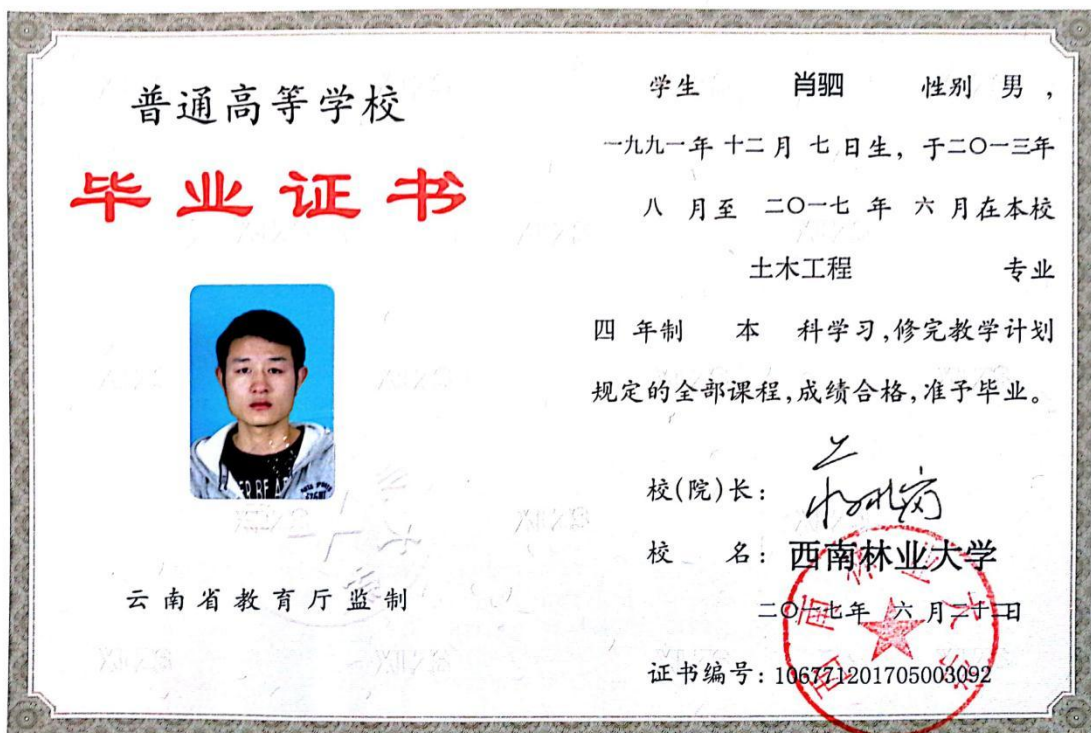 普通高等学校
毕业证书
云南省教育厅监制
学生 肖驷 性别 男，
一九九一年 十二月 七日生，于二〇一三年
八 月至 二〇一七 年 六 月在本校
土木工程 专业
四 年制 本 科学习，修完教学计划
规定的全部课程，成绩合格，准予毕业。
校(院)长：
校 名：西南林业大学
二〇一七年 六 月二十二日
证书编号：106771201705003092
西南林业大学